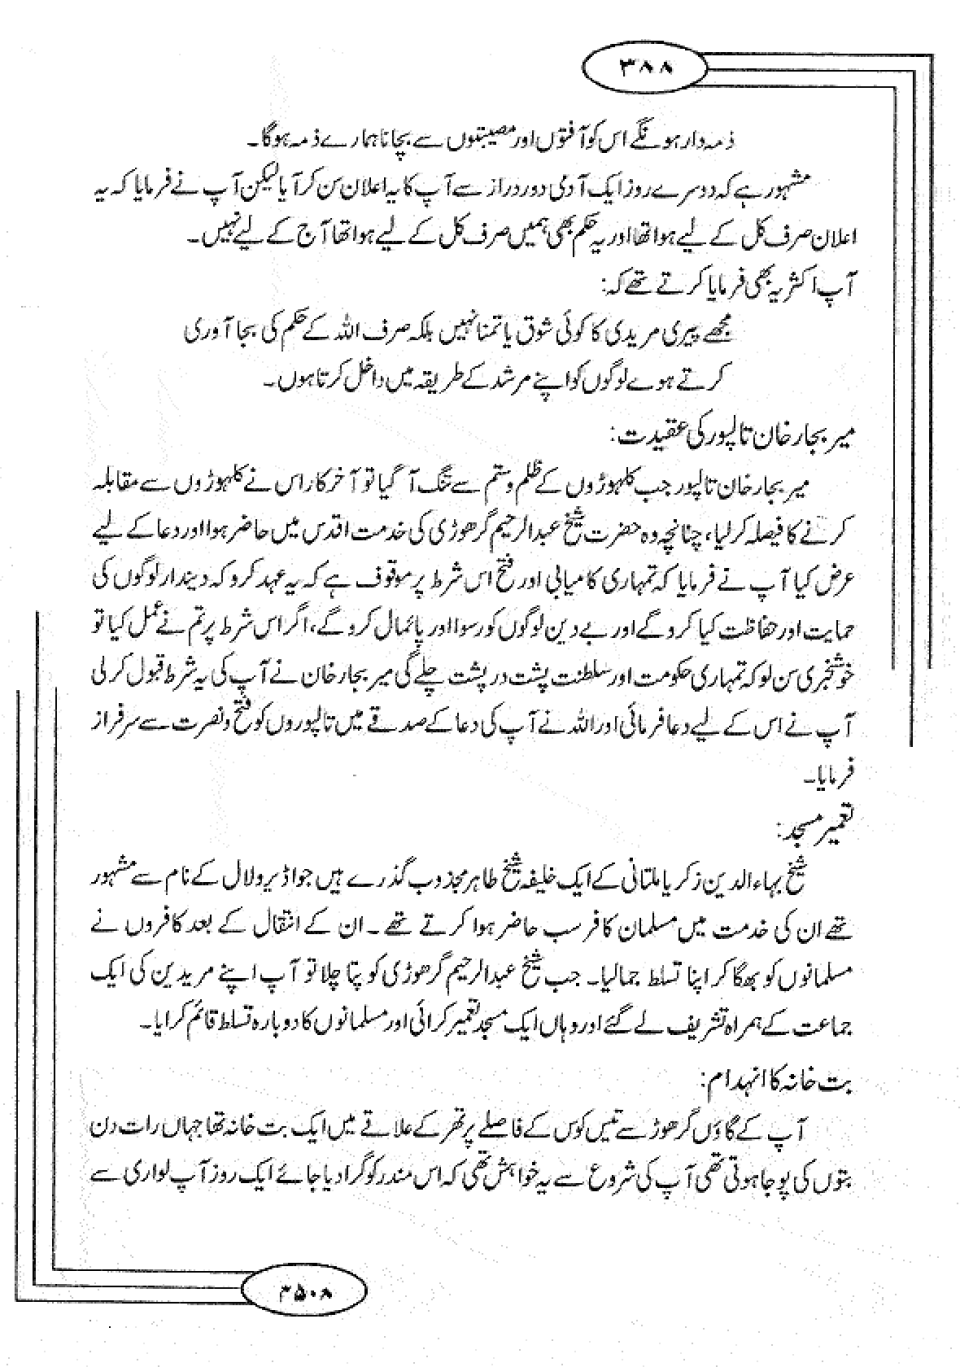 ۳۸۸
ذمہ دار ہونگے اس کو آفتوں اور مصیبتوں سے بچانا ہمارے ذمہ ہوگا۔
مشہور ہے کہ دوسرے روز ایک آدمی دور دراز سے آپ کا یہ اعلان سن کر آیا لیکن آپ نے فرمایا کہ یہ
اعلان صرف کل کے لیے ہوا تھا اور یہ حکم بھی ہمیں صرف کل کے لیے ہوا تھا آج کے لیے نہیں۔
آپ اکثر یہ بھی فرمایا کرتے تھے کہ:
مجھے پیری مریدی کا کوئی شوق یا تمنا نہیں بلکہ صرف اللہ کے حکم کی بجا آوری
کرتے ہوے لوگوں کو اپنے مرشد کے طریقہ میں داخل کرتا ہوں۔
میر بجار خان تالپور کی عقیدت:
میر بجار خان تالپور جب کلہوڑوں کے ظلم و ستم سے تنگ آ گیا تو آخر کار اس نے کلہوڑوں سے مقابلہ
کرنے کا فیصلہ کر لیا، چنانچہ وہ حضرت شیخ عبدالرحیم گرھوڑی کی خدمت اقدس میں حاضر ہوا اور دعا کے لیے
عرض کیا آپ نے فرمایا کہ تمہاری کامیابی اور فتح اس شرط پر موقوف ہے کہ یہ عہد کرو کہ دیندار لوگوں کی
حمایت اور حفاظت کیا کرو گے اور بے دین لوگوں کو رسوا اور پائمال کرو گے، اگر اس شرط پر تم نے عمل کیا تو
خوشخبری سن لو کہ تمہاری حکومت اور سلطنت پشت در پشت چلے گی میر بجار خان نے آپ کی یہ شرط قبول کر لی
آپ نے اس کے لیے دعا فرمائی اور اللہ نے آپ کی دعا کے صدقے میں تالپوروں کو فتح و نصرت سے سرفراز
فرمایا۔
تعمیر مسجد:
شیخ بہاء الدین زکریا ملتانی کے ایک خلیفہ شیخ طاہر مجذوب گذرے ہیں جو اڈیرولال کے نام سے مشہور
تھے ان کی خدمت میں مسلمان کافر سب حاضر ہوا کرتے تھے۔ ان کے انتقال کے بعد کافروں نے
مسلمانوں کو بھگا کر اپنا تسلط جمالیا۔ جب شیخ عبدالرحیم گرھوڑی کو پتا چلا تو آپ اپنے مریدین کی ایک
جماعت کے ہمراہ تشریف لے گئے اور وہاں ایک مسجد تعمیر کرائی اور مسلمانوں کا دوبارہ تسلط قائم کرایا۔
بت خانہ کا انہدام:
آپ کے گاؤں گرھوڑ سے تیس کوس کے فاصلے پر تھر کے علاقے میں ایک بت خانہ تھا جہاں رات دن
بتوں کی پوجا ہوتی تھی آپ کی شروع سے یہ خواہش تھی کہ اس مندر کو گرا دیا جائے ایک روز آپ لواری سے
۳۵۰۸